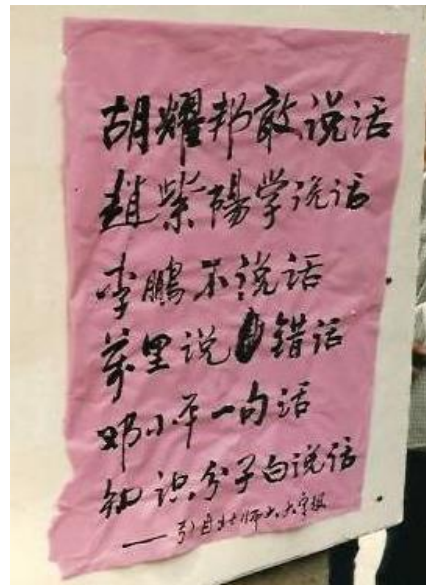 胡耀邦敢说话
趙紫陽学说话
李鵬不说话
萬里说錯话
邓小平一句话
知识分子白说话
——引自北师大大字报